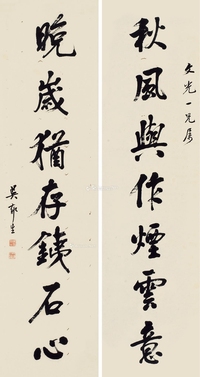 文光一兄屬
秋風與作煙雲意
晚歲猶存鐵石心
吳郁生